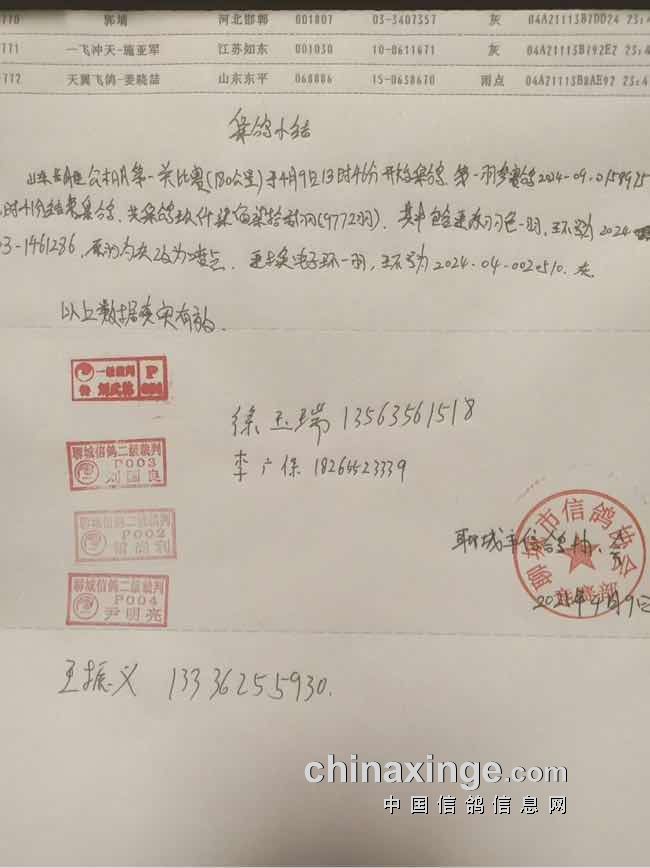 770 郭靖 河北邯郸 001807 03-3407357 灰 04A21113B7DD24 23:4
771 一飞冲天-施亚军 江苏如东 001030 10-0611671 灰 04A21113B792E2 23:4
772 天翼飞鸽-姜晓喆 山东东平 068886 15-0638670 雨点 04A21113B8AE92 23:4
集鸽小结
山东 公棚 第一关比赛(180公里)于4月9日13时46分开始集鸽. 第一羽参赛鸽2024-09-0158925
时41分结束集鸽. 共集鸽玖仟柒佰柒拾贰羽(9772羽). 其中包含更改羽色一羽, 环号为2024
03-1461286, 原为灰改为 点. 更换电子环一羽, 环号为2024-04-0020510. 灰
以上数据真实有效.
一级裁判 P
聊城信鸽二级裁判
P003
刘国良
徐玉瑞 13563561518
李广保 18265523339
聊城信鸽二级裁判
P002
聊城信鸽二级裁判
P004
尹明亮
聊城市信鸽协会
聊城市信鸽协会
竞赛部
4月9日
王振义 13336255930.
chinaxinge.com
中国信鸽信息网